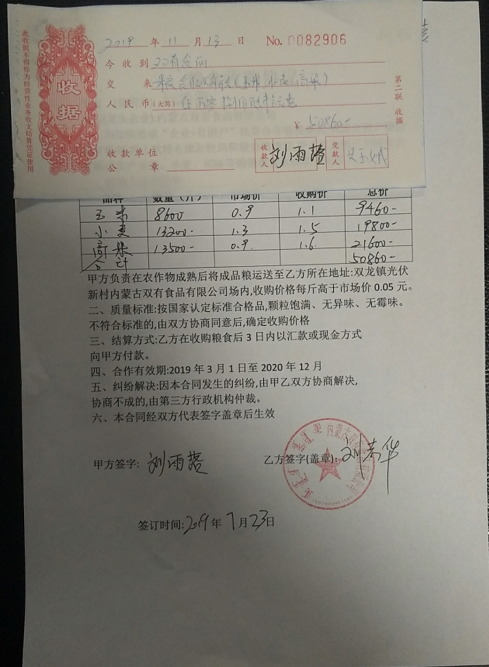 2019 年 11 月 13 日 No. 0082906
今收到 双有食品
交来
人民币(大写)
¥ 50860-
收款单位
公章
收款人 刘雨塔 交款人
第二联 收据
收据
品种 数量(斤) 市场价 收购价 总价
玉米 8600 0.9 1.1 9460-
小麦 13200- 1.3 1.5 19800-
高粱 13500- 0.9 1.6 21600-
合计 50860-
甲方负责在农作物成熟后将成品粮运送至乙方所在地址:双龙镇光伏
新村内蒙古双有食品有限公司场内,收购价格每斤高于市场价 0.05 元。
二、质量标准:按国家认定标准合格品,颗粒饱满、无异味、无霉味。
不符合标准的,由双方协商同意后,确定收购价格
三、结算方式:乙方在收购粮食后 3 日内以汇款或现金方式
向甲方付款。
四、合作有效期:2019 年 3 月 1 日至 2020 年 12 月
五、纠纷解决:因本合同发生的纠纷,由甲乙双方协商解决,
协商不成的,由第三方行政机构仲裁。
六、本合同经双方代表签字盖章后生效
甲方签字: 刘雨塔 乙方签字(盖章):
签订时间: 2019 年 7 月 23 日